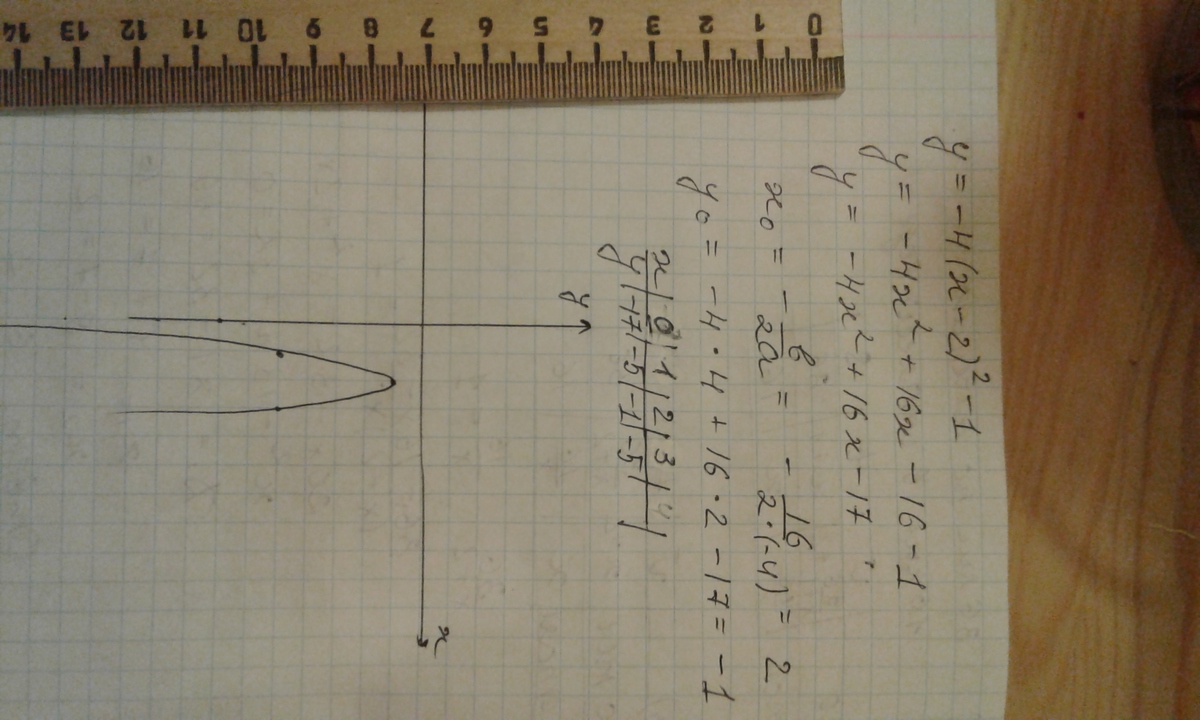 y = -4(x-2)² - 1
y = -4x² + 16x - 16 - 1
y = -4x² + 16x - 17
x₀ = - b/2a = - 16/2·(-4) = 2
y₀ = -4·4 + 16·2 - 17 = -1
x | 0 | 1 | 2 | 3 | 4
y | -17 | -5 | -1 | -5 |
y
x
0 1 2 3 4 5 6 7 8 9 10 11 12 13 14